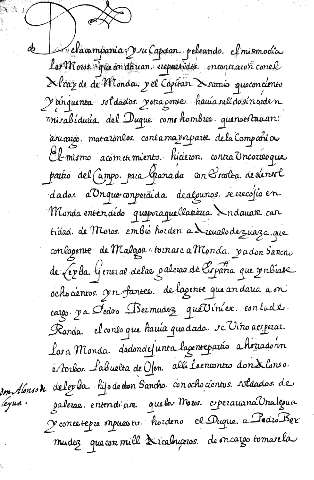 de la compania, y su Capitan peleando. el mismo dia
los Moros que andauan repartidos encontraron con el
Alcayde de Monda y el Capitan Ascanio que con ciento
y cinquenta soldados y otra gente hauia salido sin orden
ni sabiduria del Duque como hombres que no estauan
a su cargo, mataronlos con la mayor parte de la Compañia
El mismo acometimiento hicieron contra Un correo que
partio del Campo para Granada con Escolta de cien sol-
dados Aunque con perdida de algunos se recogio en
Monda entendido que por aquella tierra Andauan can-
tidad de Moros, embio horden a Arevalo de zuazo, que
con la gente de Malaga tornase a Monda y a don Sancho
de Leyba General de las galeras de España que ynbiase
ochocientos ynfantes de la gente que andaua a su
cargo y a Pedro Bermudez que Viniese con la de
Ronda el cortso que hauia quedado se Vino a esperar
los a Monda de donde junta la gente partio a hojen sin
estorbo la buelta de Ojen alli le encontro don Alonso
de leyba hijo de don Sancho con ochocientos soldados de
galeras. entendiose que los Moros esperauan Una legua
y con este presupuesto hordeno el Duque a Pedro Ber-
mudez que con mill Arcabuzeros de on cargo tomase la
don Alonso de
leyua.